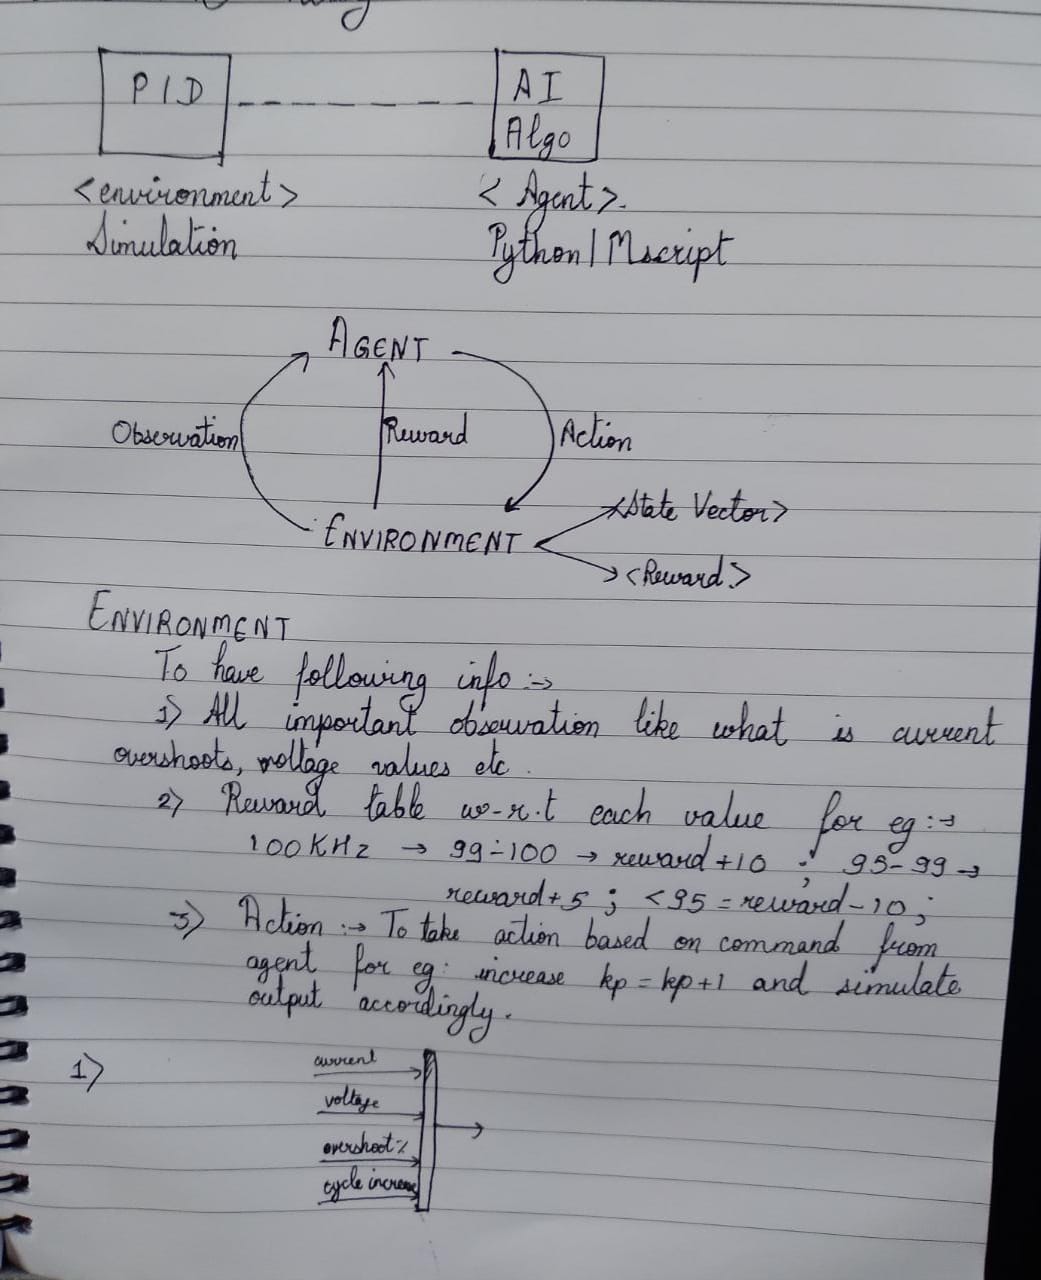 PID
AI
Algo
<environment>
< Agent>.
Simulation
Python/Mscript
AGENT
Observation
Reward
Action
<State Vector>
ENVIRONMENT
<Reward>
ENVIRONMENT
To have following info :->
1) All important observation like what is current
overshoots, voltage values etc.
2) Reward table w-r.t each value for eg :->
100KHz → 99-100 → reward+10 ; 95-99 →
reward+5 ; <95 = reward-10 ;
3) Action :-> To take action based on command from
agent for eg: increase kp = kp+1 and simulate
output accordingly.
1)
current
voltage
overshoot%
cycle increase